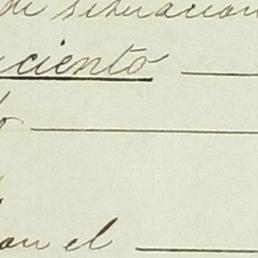 de situacion
ciento
o
on el